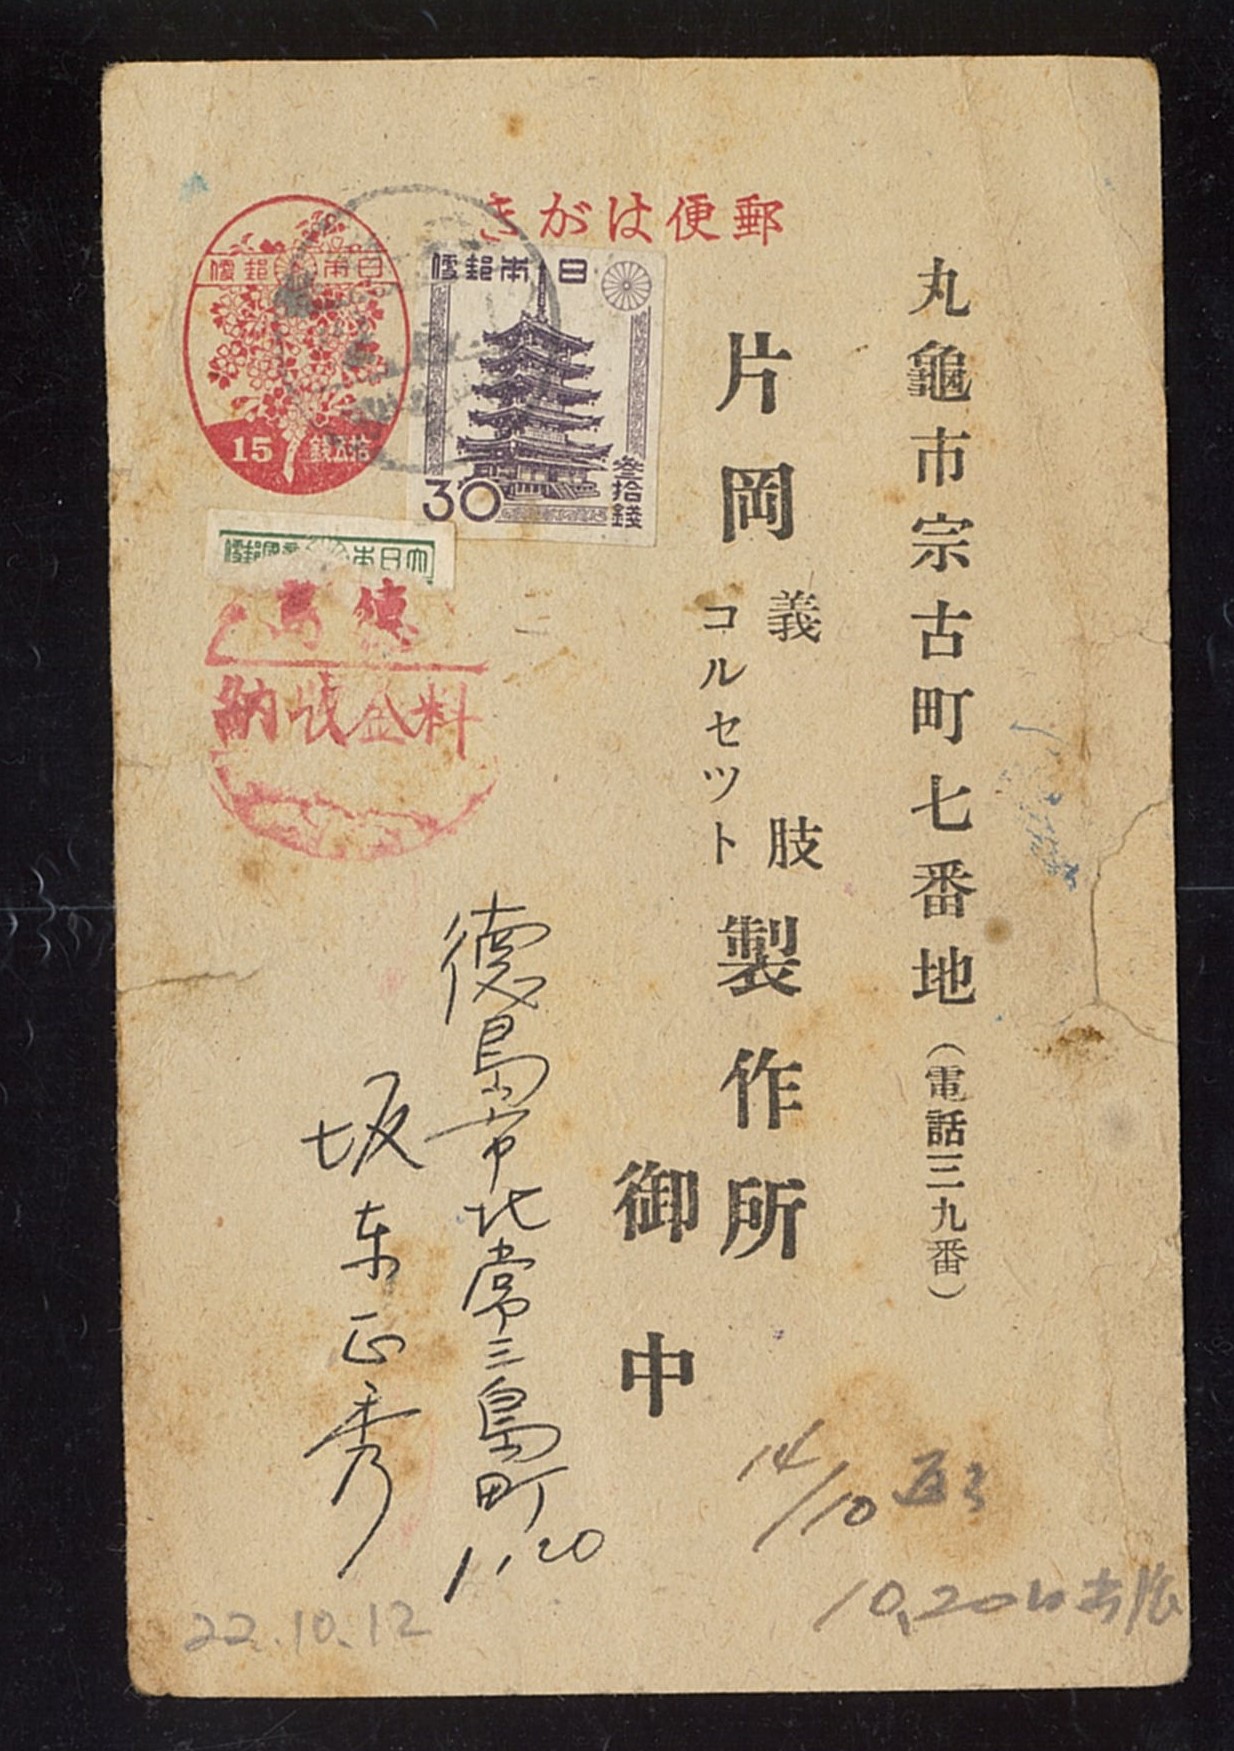 郵便はがき
日本郵便
15
拾五銭
日本郵便
30
参拾銭
大日本帝国郵便
徳島
料金収納
丸龜市宗古町七番地(電話三九番)
片岡
義肢
コルセツト
製作所
御中
徳島市北常三島町1,20
坂東正秀
14/10
10,20
22.10.12